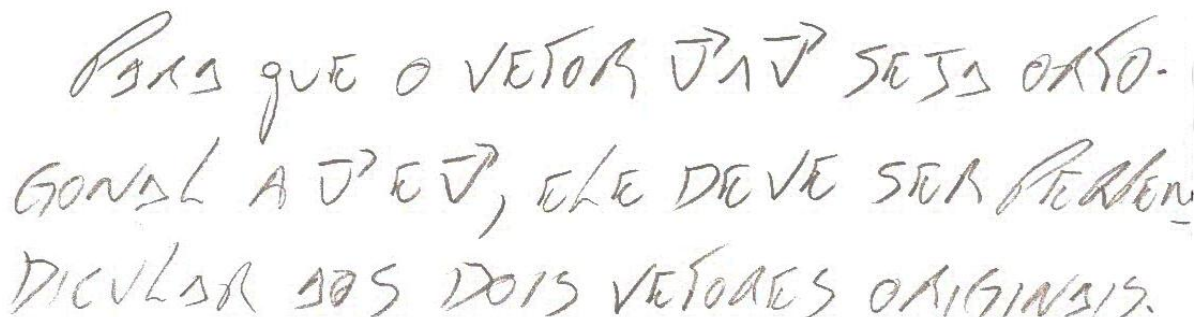 PARA QUE O VETOR U⃗ ∧ V⃗ SEJA ORTO-
GONAL A U⃗ E V⃗, ELE DEVE SER PERPEN
DICULAR AOS DOIS VETORES ORIGINAIS.